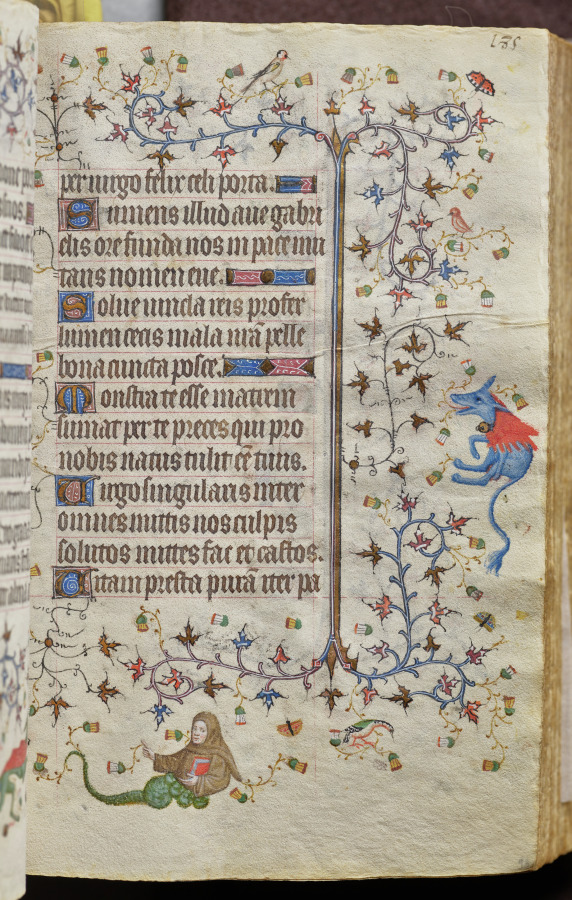 185
per uirgo felix celi porta.
Sumens illud aue gabri
elis ore funda nos in pace mu
tans nomen eue.
Solue uincla reis profer
lumen cecis mala nr̃a pelle
bona cuncta posce.
Monstra te esse matrem
sumat per te preces qui pro
nobis natus tulit eẽ tuus.
Uirgo singularis inter
omnes mitis nos culpis
solutos mittes fac et castos.
Uitam presta purã iter pa